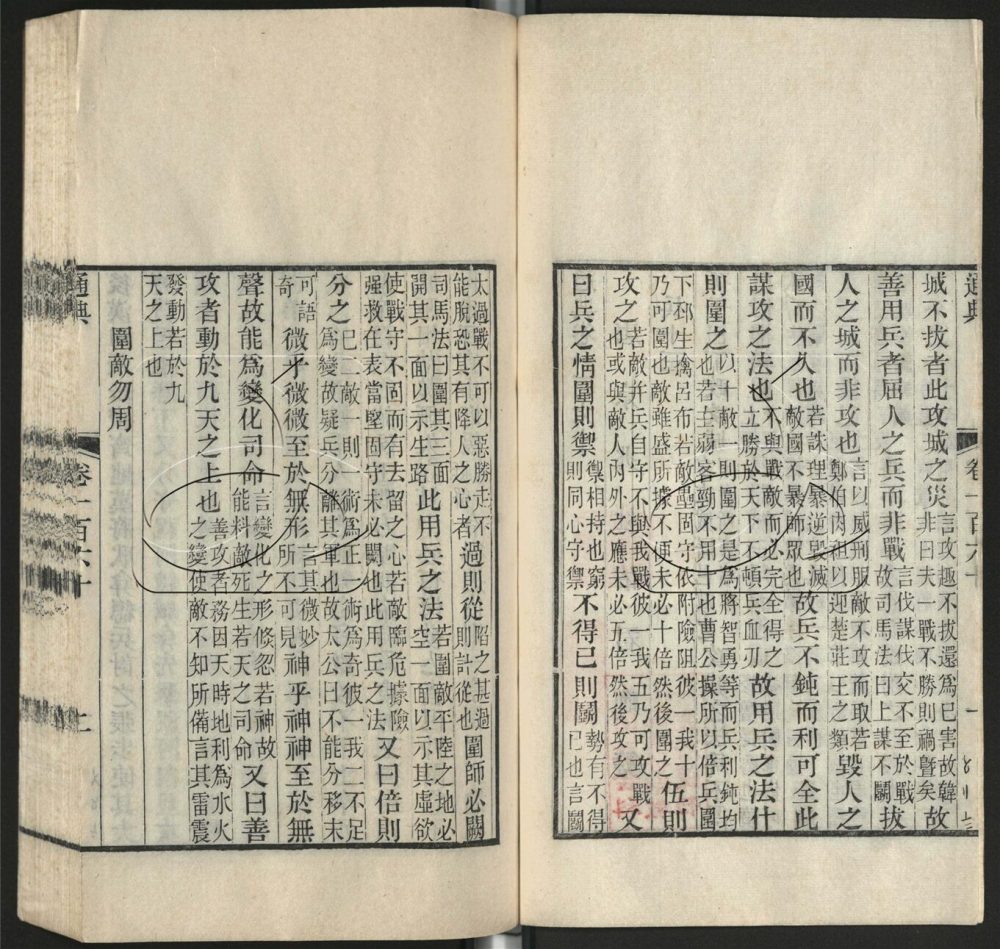 通典　卷一百六十　一
城不拔者此攻城之災言攻趣不拔還為己害故韓
非曰夫一戰不勝則禍暨矣故
善用兵者屈人之兵而非戰言伐謀伐交不至於戰
故司馬法曰上謀不鬭拔
人之城而非攻也言以威刑服敵不攻而取若
鄭伯肉袒以迎楚莊王之類毀人之
國而不久也若誅理暴逆毀滅
敵國不暴師眾也故兵不鈍而利可全此
謀攻之法也不與戰敵而必完全得之
立勝於天下不頓兵血刃故用兵之法什
則圍之以十敵一則圍之是為將智勇等而兵利鈍均
也若主弱客勁不用十也曹公操所以倍兵圍
下邳生擒呂布若敵壘固守依附險阻彼一我十
乃可圍也敵雖盛所據不便未必十倍然後圍之伍則
攻之若敵并兵自守不與我戰彼一我五乃可攻戰
也或與敵人內外之應未必五倍然後攻之又
曰兵之情圍則禦禦相持也窮
則同心守禦不得已則鬭勢有不得
已也言鬭
太過戰不可以惡勝走不
能脫恐其有降人之心者過則從陷之甚過
則計從也圍師必闕
司馬法曰圍其三面
開其一面以示生路此用兵之法若圍敵平陸之地必
空一面以示其虛欲
使戰守不固而有去留之心若敵臨危據險
强救在表當堅固守未必闕也此用兵之法又曰倍則
分之已二敵一則一術為正一術為奇彼一我二不足
為變故疑兵分離其軍也故太公曰不能分移未
可語
奇微乎微微至於無形言其微妙
所不可見神乎神神至於無
聲故能爲變化司命言變化之形倏忽若神故
能料敵死生若天之司命又曰善
攻者動於九天之上也善攻者務因天時地利為水火
之變使敵不知所備言其雷震
發動若於九
天之上也
圍敵勿周
通典　卷一百六十　二